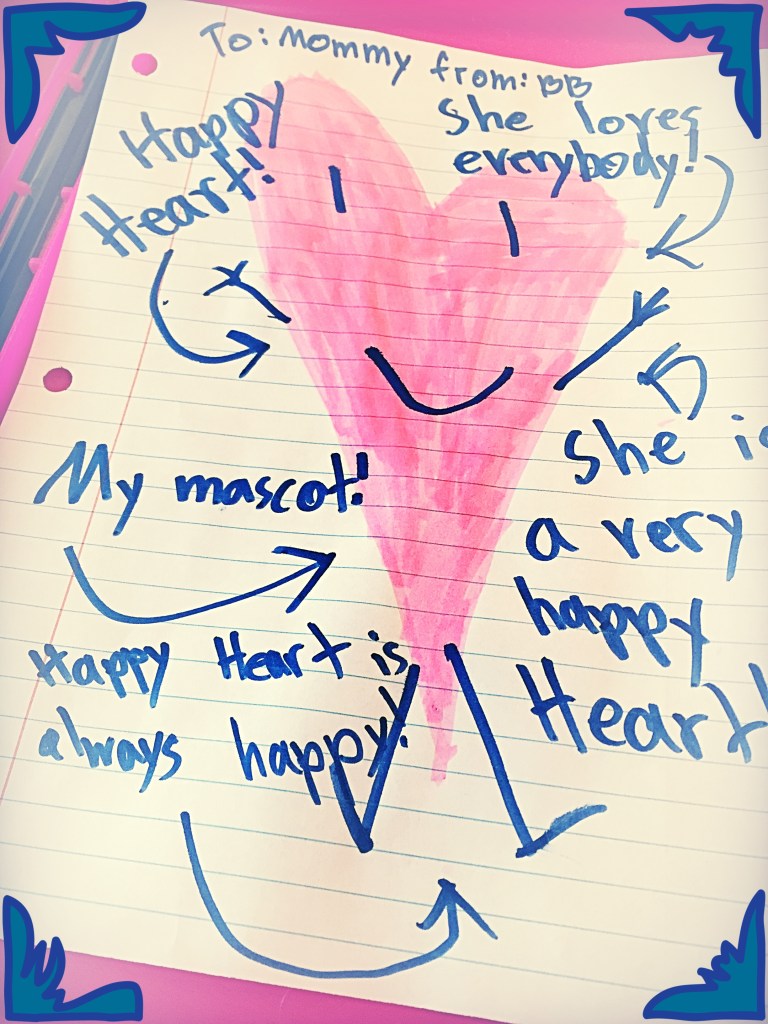 To: Mommy from: BB
Happy
Heart!
She loves
everybody!
My mascot!
She is
a very
happy
Heart!
Happy Heart is
always happy!